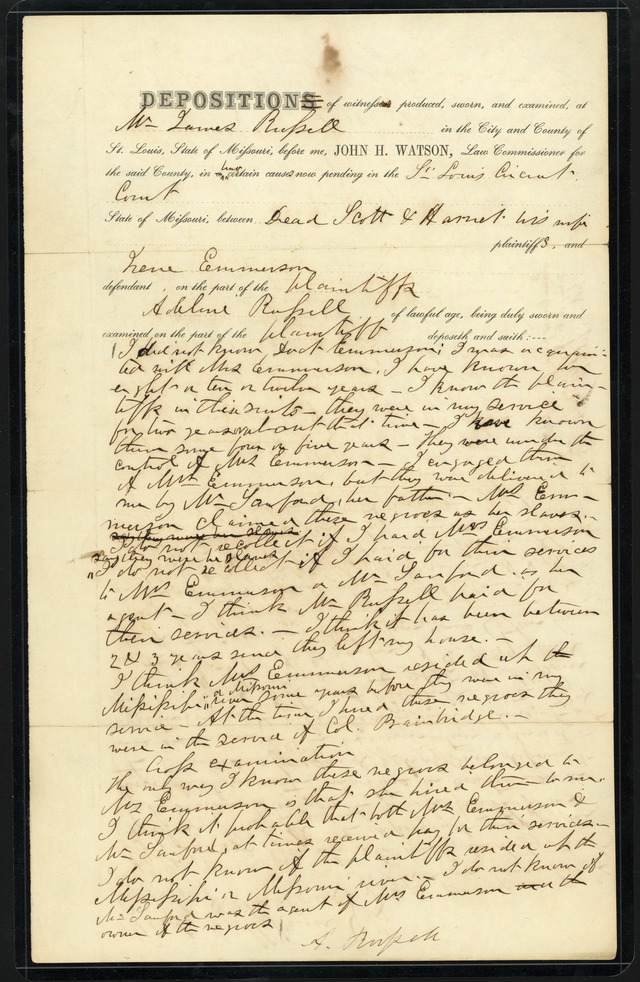 DEPOSITIONS of witnesses produced, sworn, and examined, at
Mr James Russell in the City and County of
St. Louis, State of Missouri, before me, JOHN H. WATSON, Law Commissioner for
the said County, in two certain causes now pending in the St Louis Circuit
Court
State of Missouri, between Dead Scott & Harriet his wife
plaintiffs, and
Irene Emmerson
defendant , on the part of the plaintiffs
Adeline Russell of lawful age, being duly sworn and
examined on the part of the plaintiff deposeth and saith:---
I did not know Doct Emmerson; I was acquain-
ted with Mrs Emmerson. I have known her
eight or ten or twelve years — I know the plain-
tiffs in this suits — they were in my service
for two years about that time — I have known
them some four or five years — they were under the
control of Mrs Emmerson — I engaged them
of Mrs Emmerson, but they were delivered to
me by Mr Sanford, her father. — Mrs Em-
merson claimed these negroes as her slaves. —
I do not recollect if I paid Mrs Emmerson
say they were her slaves
I do not recollect if I paid for their services
to Mrs Emmerson or Mr Sanford as her
agent — I think Mr Russell paid for
their services. — I think it has been between
2 & 3 years since they left my house. —
I think Mrs Emmerson resided at the
Missisippi or Missouri river some years before they were in my
service — At the time I hired these negroes they
were in the service of Col. Bainbridge. —
Cross examination
The only way I know these negroes belonged to
Mrs Emmerson is that she hired them to me.
I think it probable that both Mrs Emmerson &
Mr Sanford, at times received pay for their services —
I do not know if the plaintiffs resided at the
Missisippi or Missouri river — I do not know if
Mr Sanford was the agent of Mrs Emmerson or the
owner of the negroes
A. Russell